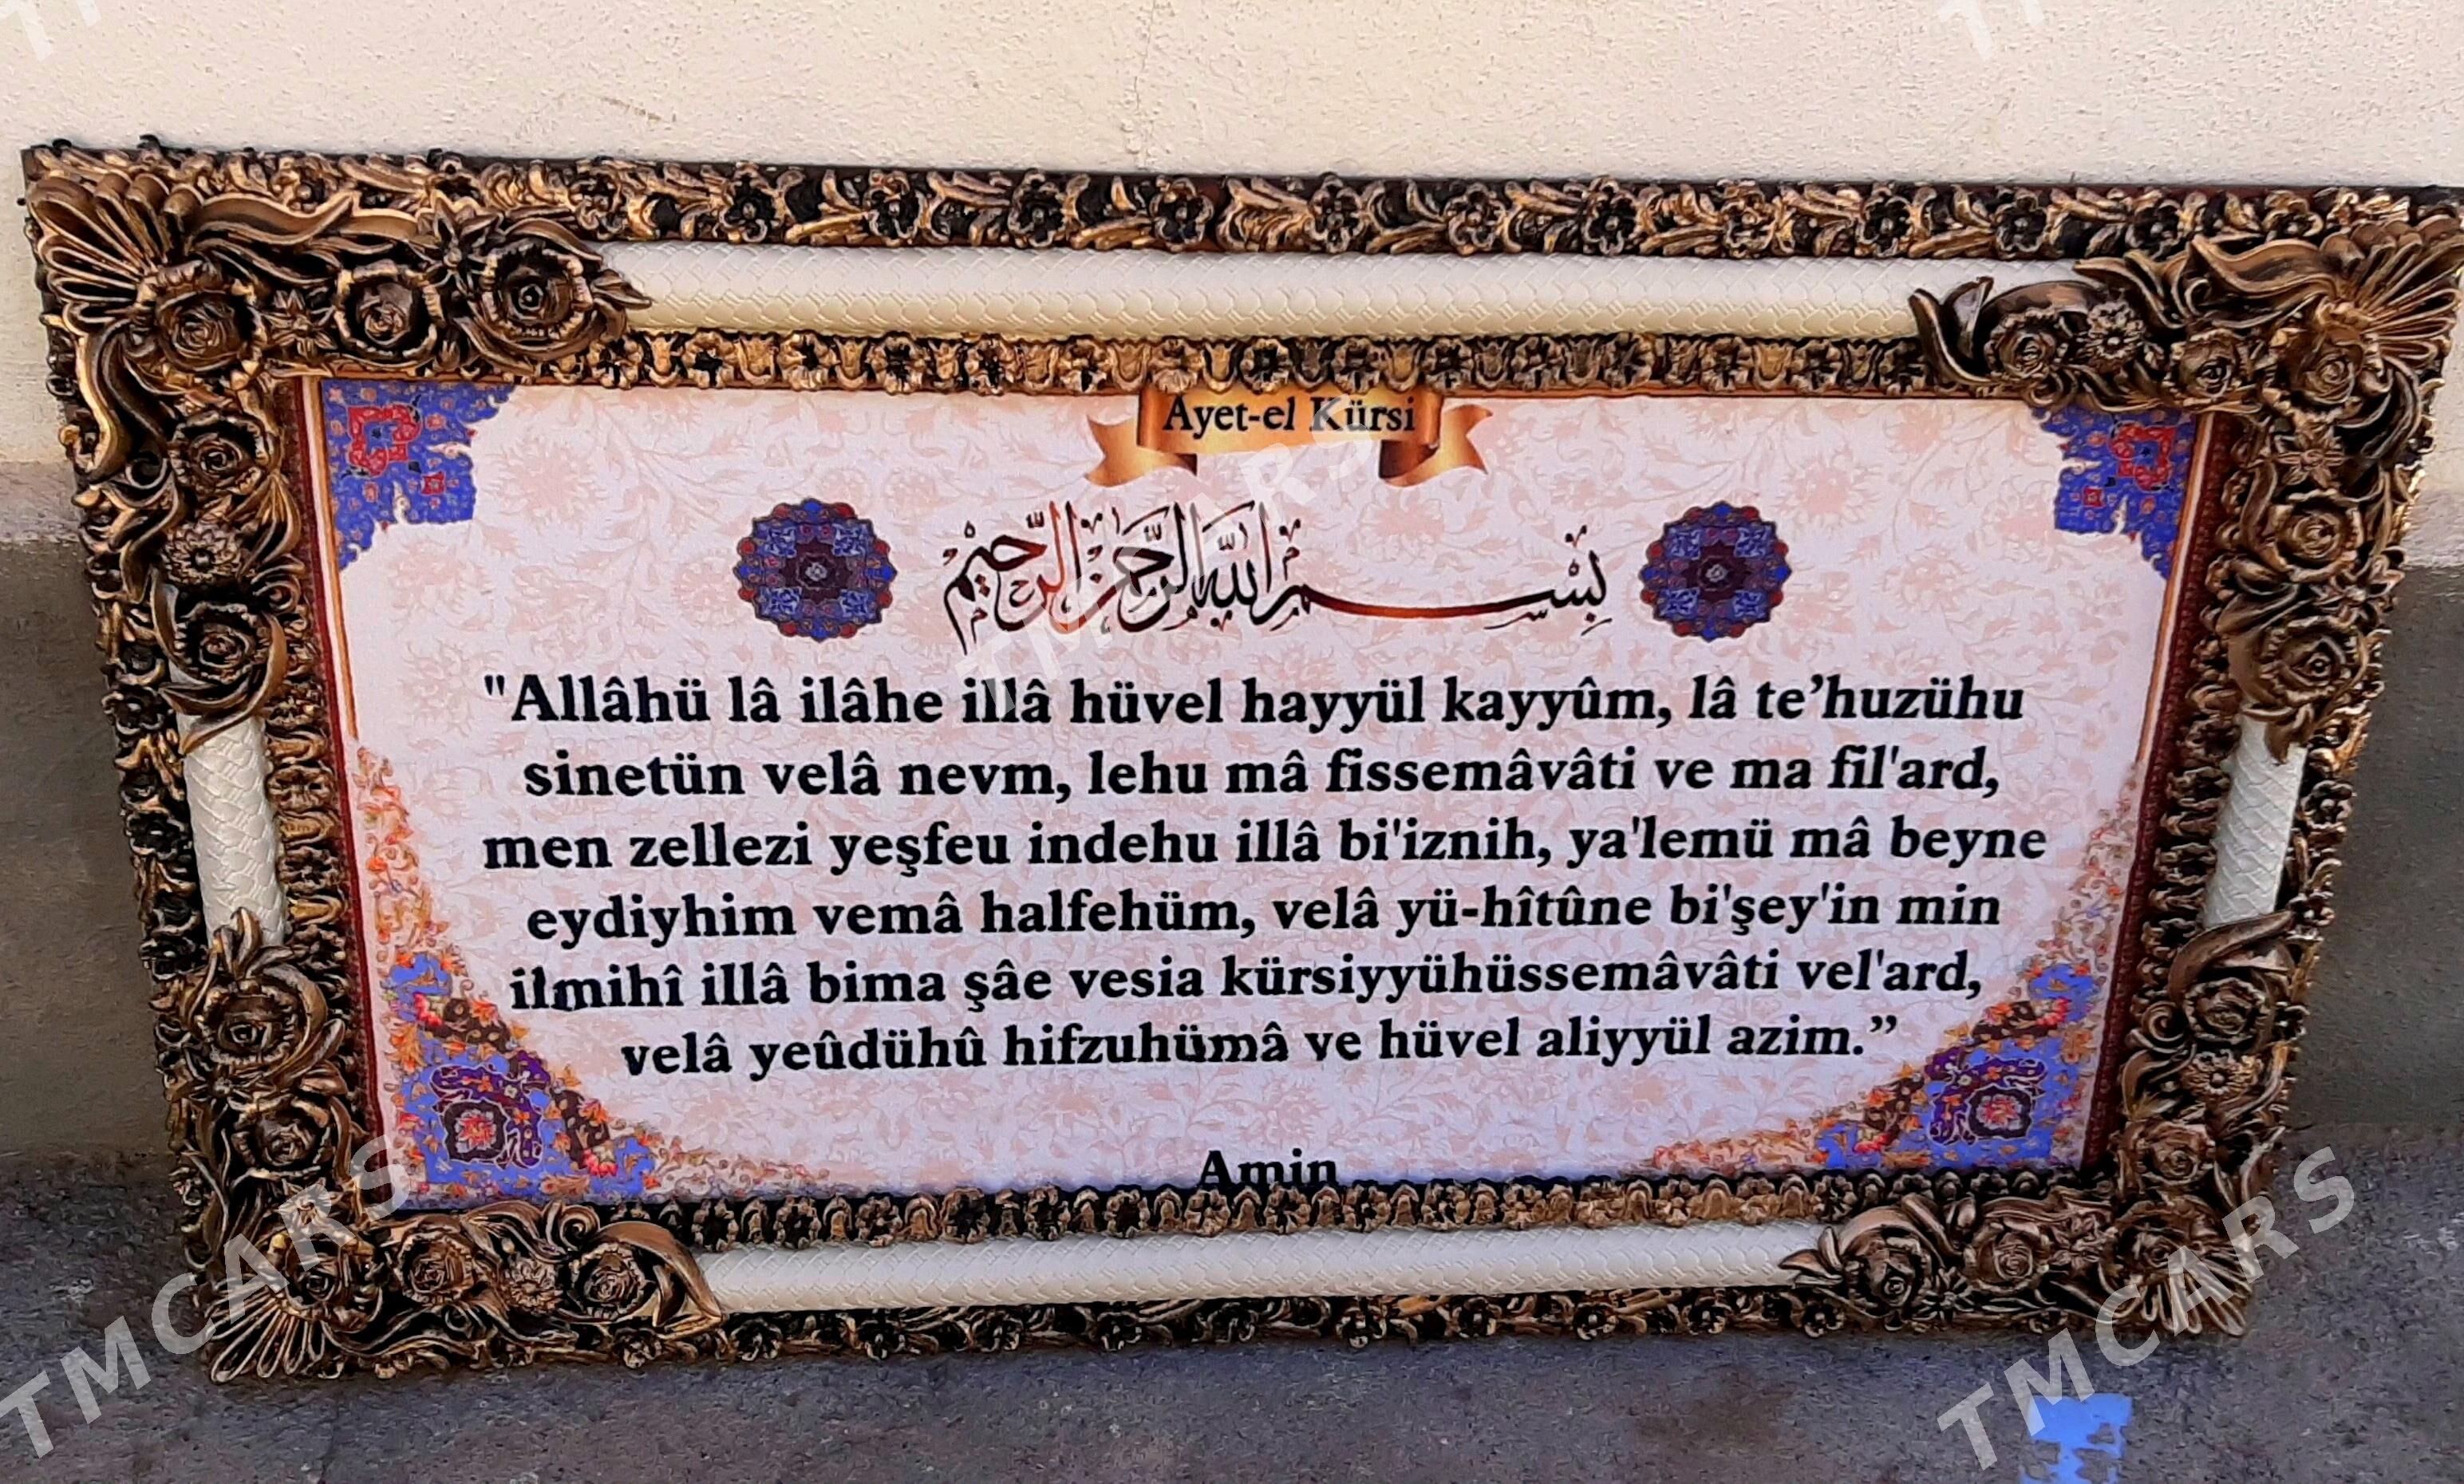 Ayet-el Kürsi
بِسْمِ اللهِ الرَّحْمٰنِ الرَّحِيْمِ
"Allâhü lâ ilâhe illâ hüvel hayyül kayyûm, lâ te’huzühu
sinetün velâ nevm, lehu mâ fissemâvâti ve ma fil'ard,
men zellezi yeşfeu indehu illâ bi'iznih, ya'lemü mâ beyne
eydiyhim vemâ halfehüm, velâ yü-hîtûne bi'şey'in min
ilmihî illâ bima şâe vesia kürsiyyühüssemâvâti vel'ard,
velâ yeûdühû hifzuhümâ ve hüvel aliyyül azim.”
Amin
TMCARS
TMCARS
TMCARS